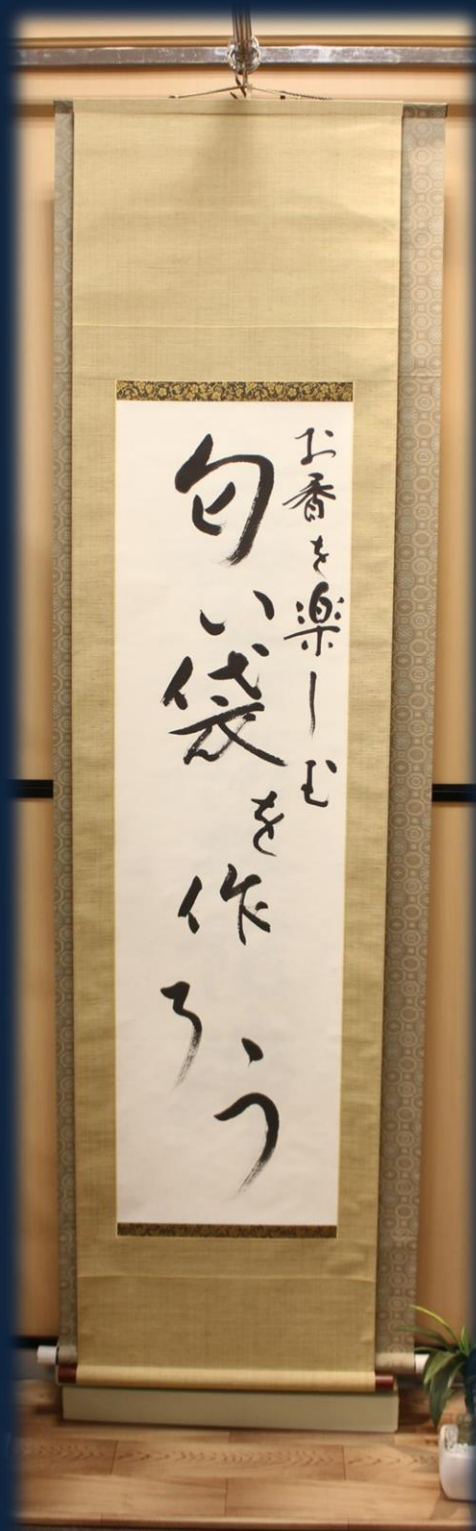 お香を楽しむ
匂い袋を作ろう